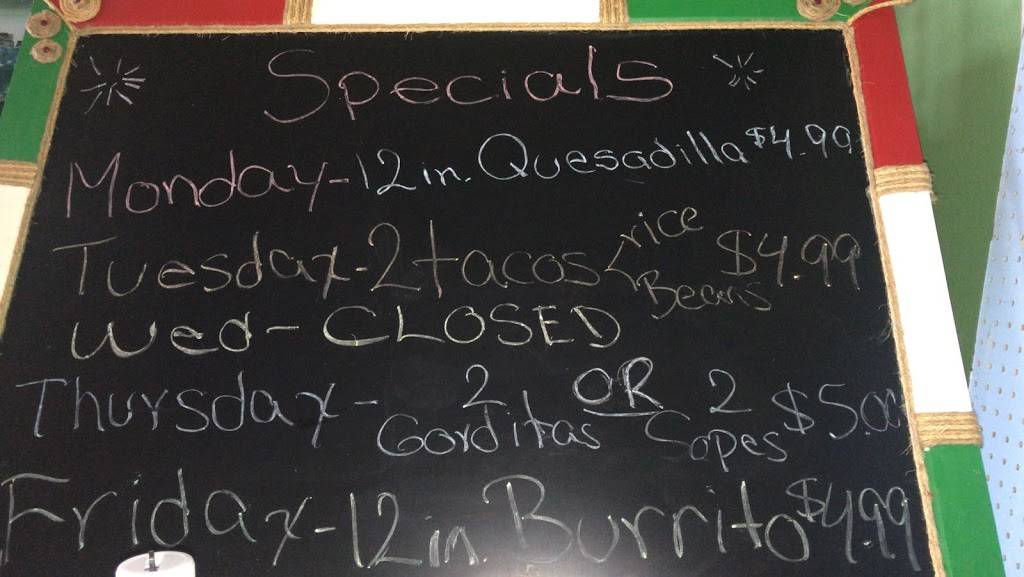 Specials
Monday-12in. Quesadilla $4.99
Tuesday-2 tacos < rice Beans $4.99
Wed- CLOSED
Thursday- 2 Gorditas OR 2 Sopes $5.00
Friday-12in. Burrito $4.99